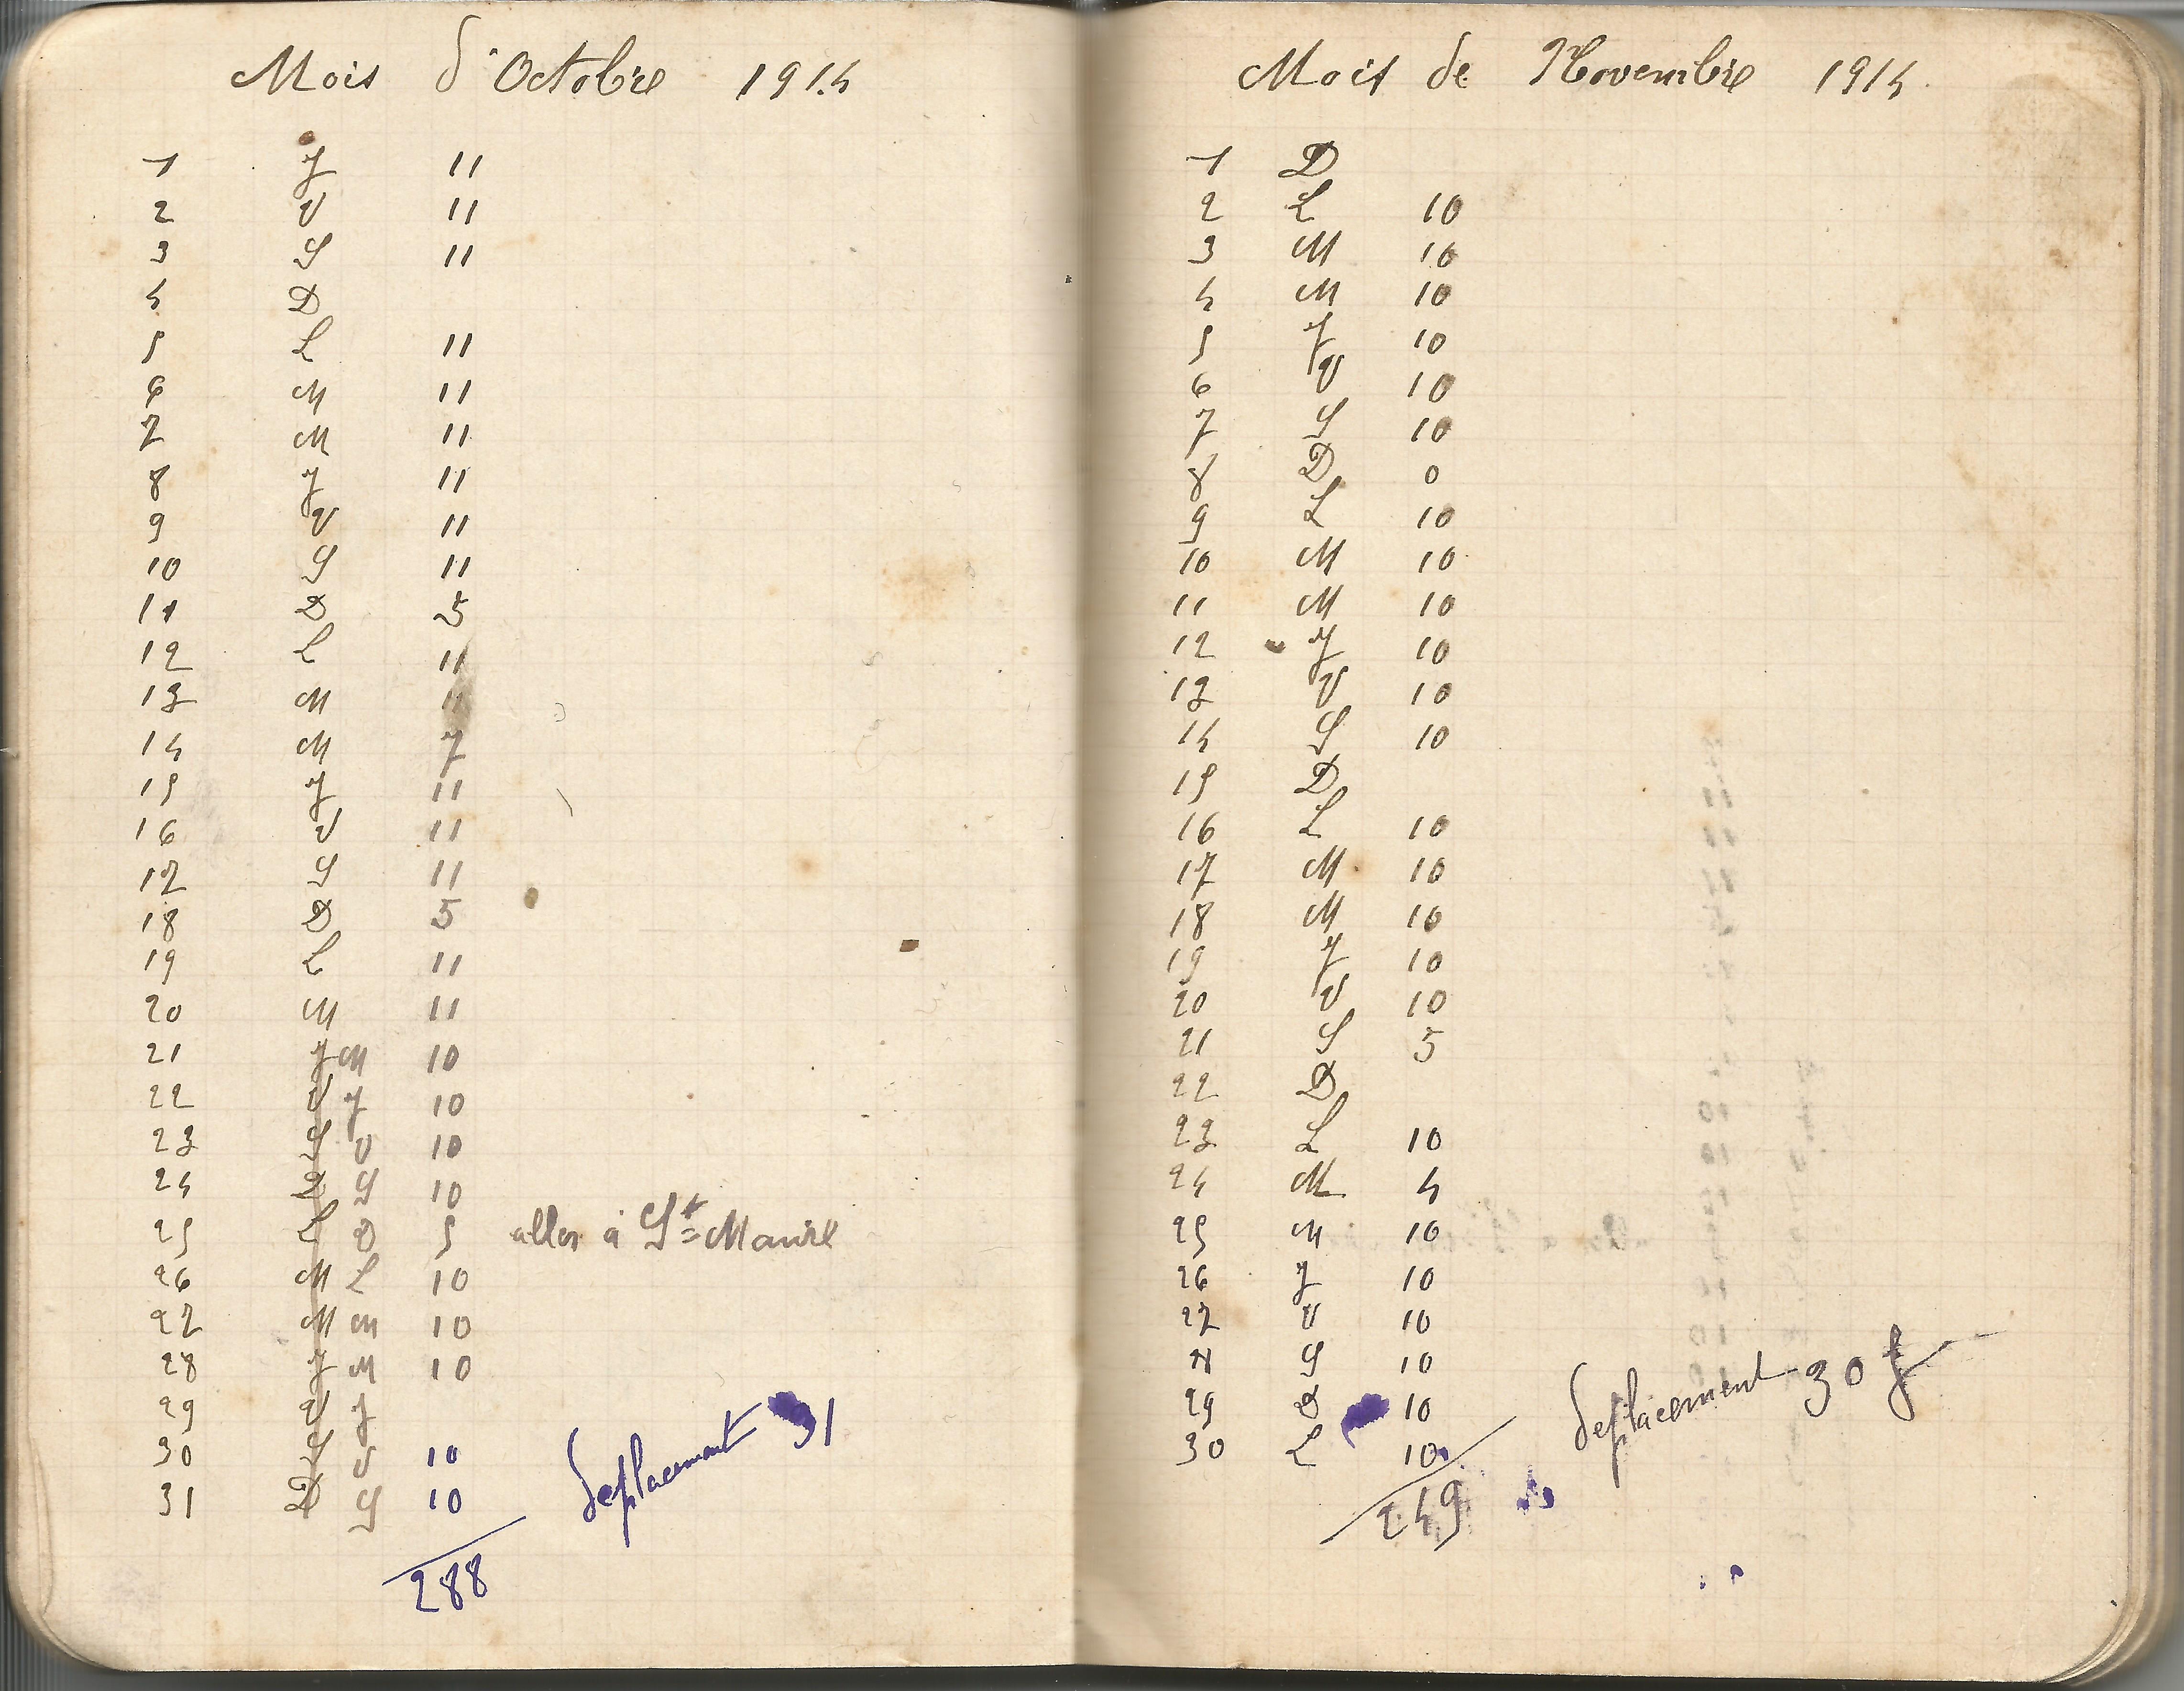 Mois d'Octobre 1914
1 J 11
2 V 11
3 S 11
4 D
5 L 11
6 M 11
7 M 11
8 J 11
9 V 11
10 S 11
11 D 5
12 L 11
13 M 11
14 M 7
15 J 11
16 V 11
17 S 11
18 D 5
19 L 11
20 M 11
21 J M 10
22 V J 10
23 S V 10
24 D S 10
25 L D 5 aller à St Maure
26 M L 10
27 M M 10
28 J M 10
29 V J
30 S V 10
31 D S 10
deplacement 31
288
Mois de Novembre 1914.
1 D
2 L 10
3 M 10
4 M 10
5 J 10
6 V 10
7 S 10
8 D 0
9 L 10
10 M 10
11 M 10
12 J 10
13 V 10
14 S 10
15 D
16 L 10
17 M 10
18 M 10
19 J 10
20 V 10
21 S 5
22 D
23 L 10
24 M 4
25 M 10
26 J 10
27 V 10
28 S 10
29 D 10
30 L 10
deplacement 30 f
249